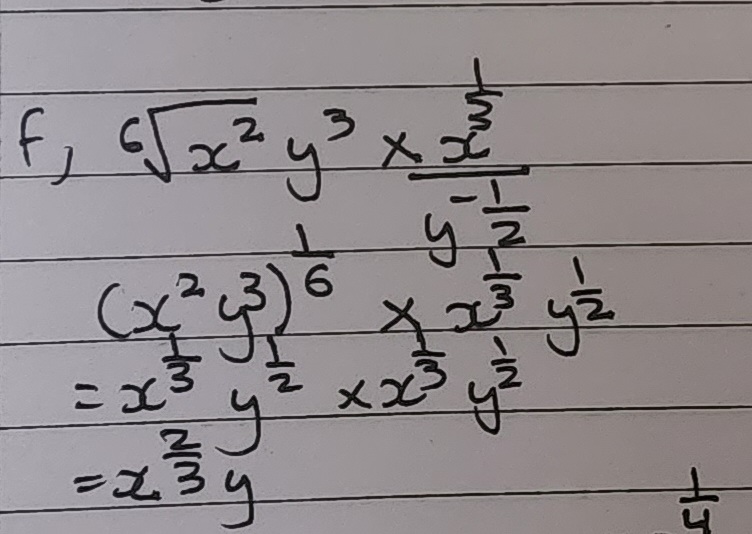 f, ⁶√x² y³ × x^(1/3) / y^(-1/2)
(x² y³)^(1/6) × x^(1/3) y^(1/2)
= x^(1/3) y^(1/2) × x^(1/3) y^(1/2)
= x^(2/3) y
1/4